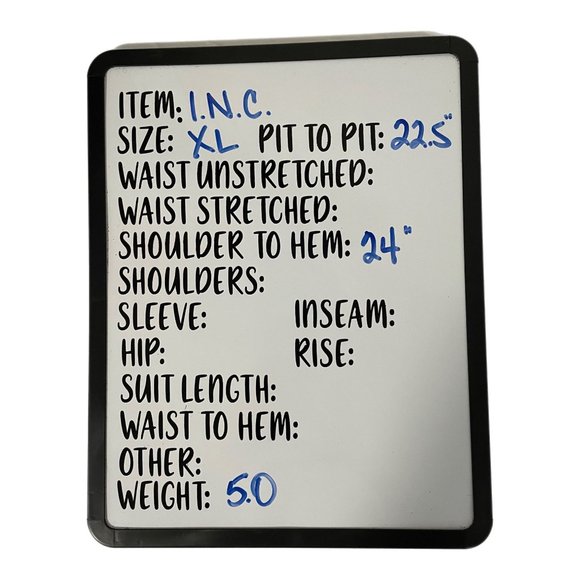 ITEM: I.N.C.
SIZE: XL PIT TO PIT: 22.5"
WAIST UNSTRETCHED:
WAIST STRETCHED:
SHOULDER TO HEM: 24"
SHOULDERS:
SLEEVE: INSEAM:
HIP: RISE:
SUIT LENGTH:
WAIST TO HEM:
OTHER:
WEIGHT: 5.0